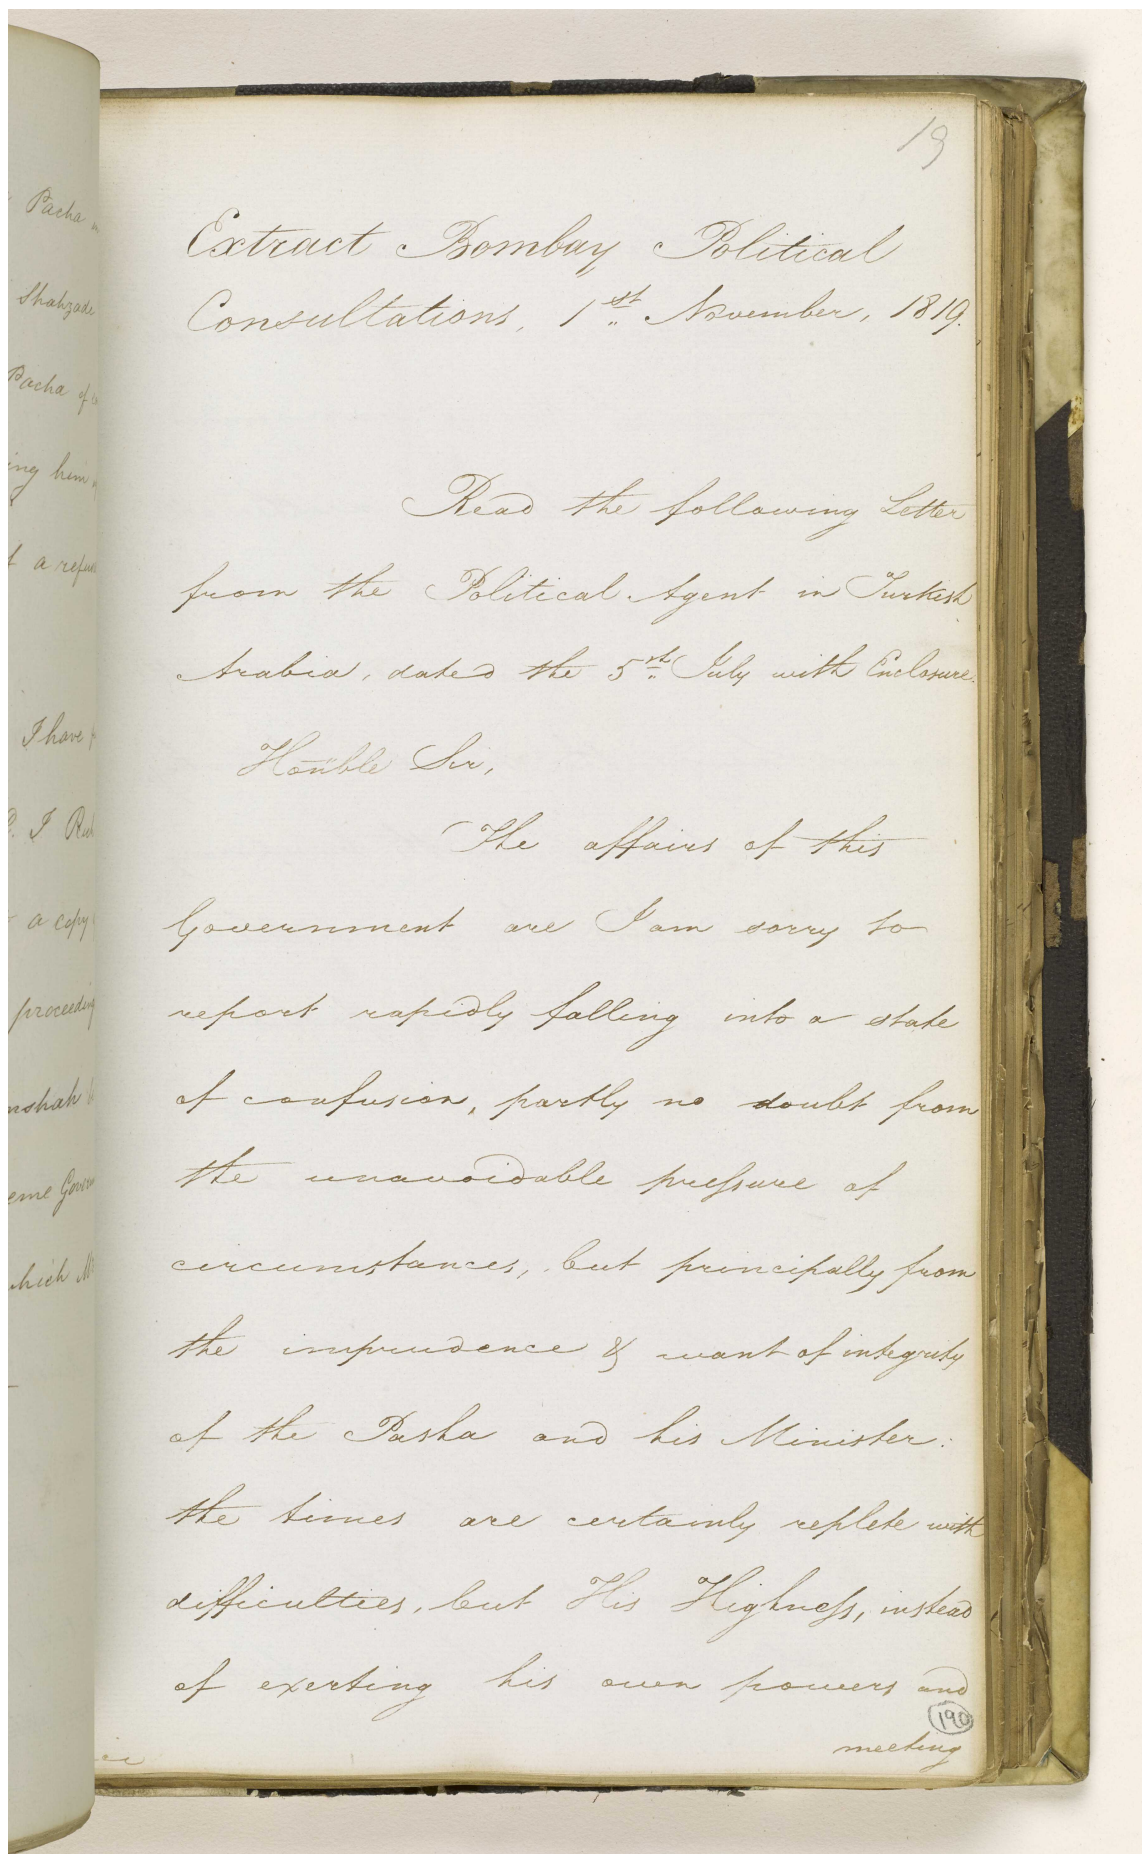 Pacha
Shahzade
Pacha of
ing him
a refu
I have
I Rich
a copy
proceeding
nshah
eme Gover
hich
19
Extract Bombay Political
Consultations, 1st November, 1819.
Read the following Letter
from the Political Agent in Turkish
Arabia, dated the 5th July with Enclosure.
Honble Sir,
The affairs of this
Government are I am sorry to
report rapidly falling into a state
of confusion, partly no doubt from
the unavoidable pressure of
circumstances, but principally from
the imprudence & want of integrity
of the Pasha and his Minister:
the times are certainly replete with
difficulties, but His Highness, instead
of exerting his own powers and
190
meeting